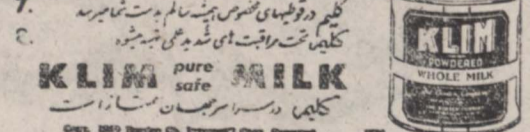 کلیم در قوطیهای مخصوص همیشه سالم بدست شما میرسد
کلیم تحت مراقبت های شدید علمی تهیه میشود
KLIM pure safe MILK
کلیم در سراسر جهان ممتاز است
KLIM
POWDERED
WHOLE MILK